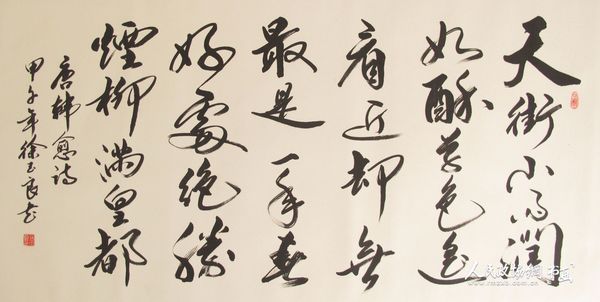 天街小雨潤
如酥草色遥
看近却無
最是一年春
好處絕勝
煙柳滿皇都
唐韩愈詩
甲午年徐玉良书
人民政协网·书画
www.rmzxb.com.cn